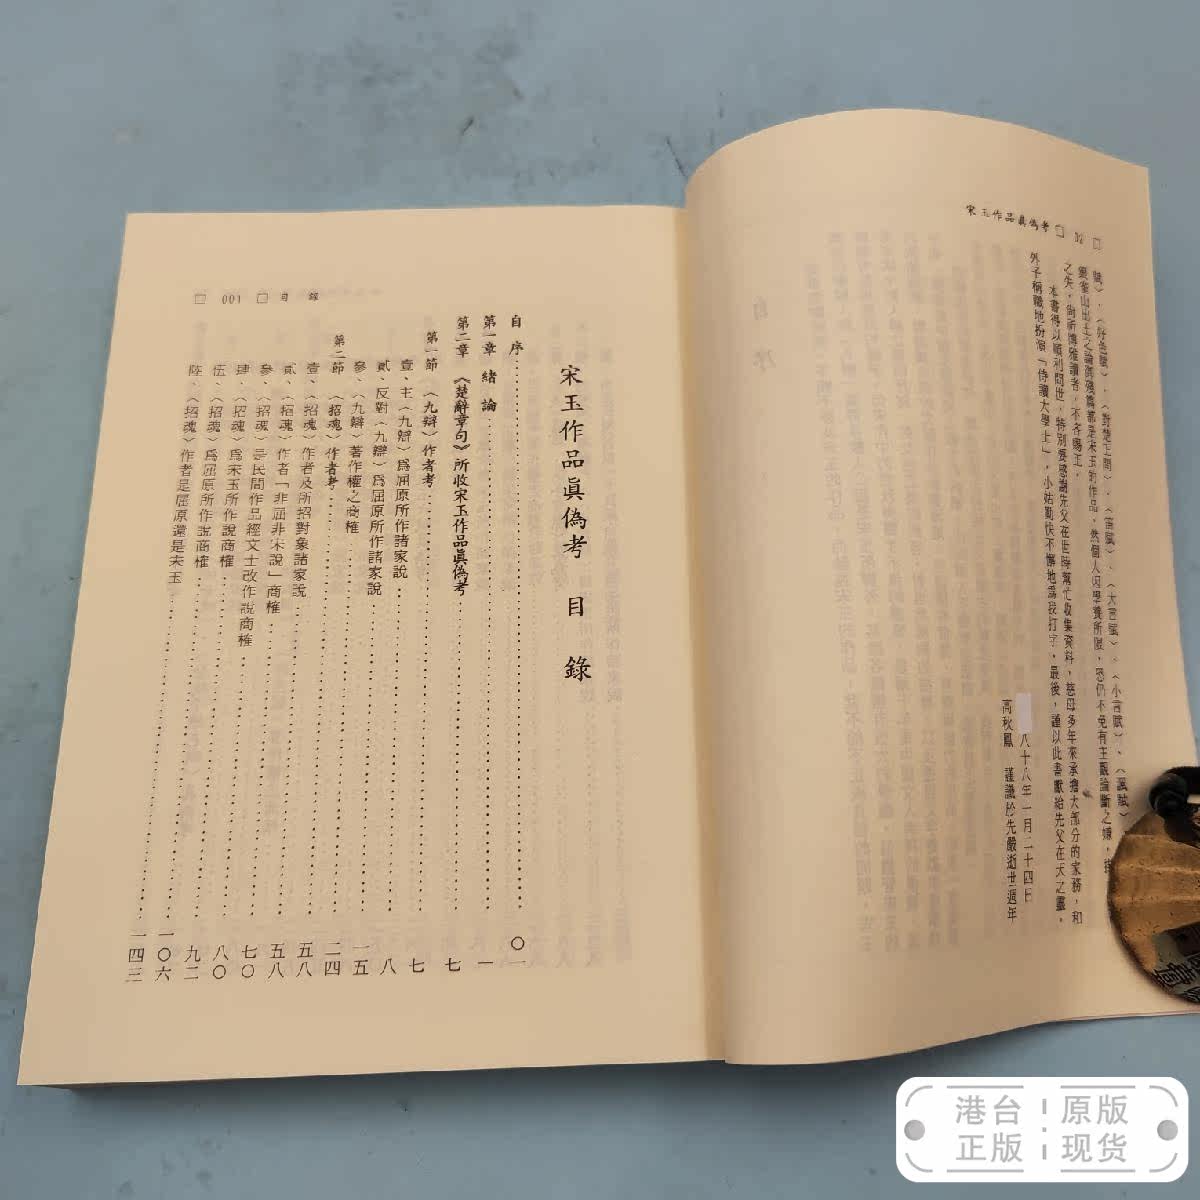 宋玉作品眞偽考 □ 02 □
賦〉、〈好色賦〉、〈對楚王問〉、〈笛賦〉、〈大言賦〉、〈小言賦〉、〈諷賦〉、
銀雀山出土之論御殘篇都是宋玉的作品，然個人因學養所限，恐仍不免有主觀論斷之嫌，
之失，尚祈博雅讀者，不吝賜正。
本書得以順利問世，特別要感謝先父在世時幫忙收集資料，慈母多年來承擔大部分的家務，和
外子稱職地扮演「侍讀大學士」，小姑勤快不懈地爲我打字，最後，謹以此書獻給先父在天之靈。
八十八年一月二十四日
高秋鳳 謹識於先嚴逝世週年
宋玉作品眞偽考 目 錄
自 序 〇一
第一章 緒 論 一
第二章 《楚辭章句》所收宋玉作品眞偽考 七
第一節 〈九辯〉作者考 七
壹、主〈九辯〉爲屈原所作諸家說 八
貳、反對〈九辯〉爲屈原所作諸家說 一五
參、〈九辯〉著作權之商榷 二四
第二節 〈招魂〉作者考 五八
壹、〈招魂〉作者及所招對象諸家說 五八
貳、〈招魂〉作者「非屈非宋說」商榷 七〇
參、〈招魂〉是民間作品經文士改作說商榷 八〇
肆、〈招魂〉爲宋玉所作說商榷 九二
伍、〈招魂〉爲屈原所作說商榷 一〇六
陸、〈招魂〉作者是屈原還是宋玉 一四三
□ 001 □ 目 錄
港台 原版
正版 现货